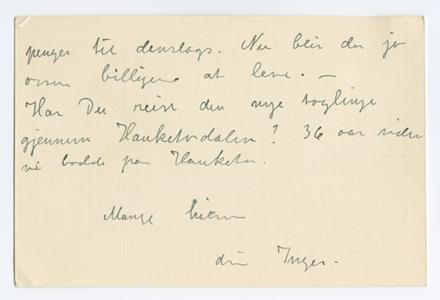 penger til denslags. Nu blir du jo
ossm billigere at leve. –
Har Du reist den nye toglinje
gjennem Hauketodalen? 36 aar siden
vi bodde paa Hauketo.
Mange hilsen
din Inger.